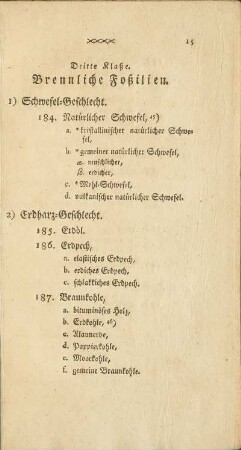 15
Dritte Klaße.
Brennliche Foßilien.
1) Schwefel-Geschlecht.
184. Natürlicher Schwefel, 45)
a. *kristallinischer natürlicher Schwe-
fel,
b. *gemeiner natürlicher Schwefel,
α. muschlicher,
β. erdicher,
c. *Mehl-Schwefel,
d. vulkanischer natürlicher Schwefel.
2) Erdharz-Geschlecht.
185. Erdöl.
186. Erdpech,
a. elastisches Erdpech,
b. erdiches Erdpech,
c. schlackiches Erdpech.
187. Braunkohle,
a. bituminöses Holz,
b. Erdkohle, 46)
c. Alaunerde,
d. Papierkohle,
e. Moorkohle,
f. gemeine Braunkohle.